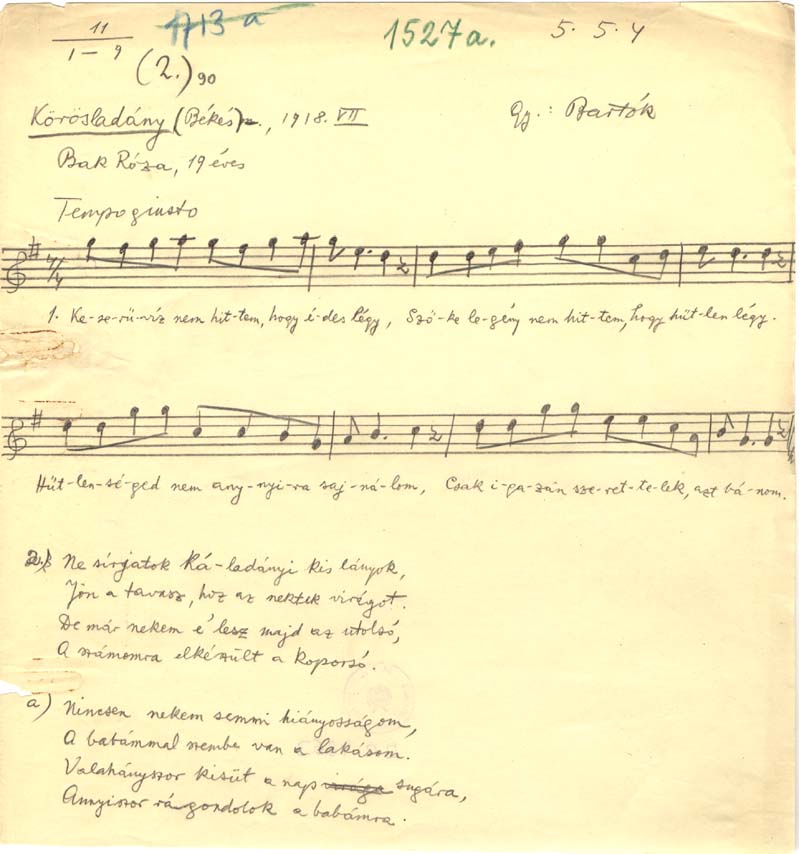 11
1-9
1713 a
1527a.
5. 5. 4
(2.) 90
Körösladány (Békés), 1918. VII
Gy.: Bartók
Bak Róza, 19 éves
Tempo giusto
1. Ke-se-rü-víz nem hit-tem, hogy é-des légy, Sző-ke le-gény nem hit-tem, hogy hüt-len légy.
Hüt-len-sé-ged nem any-nyi-ra saj-ná-lom, Csak i-ga-zán sze-ret-te-lek, azt bá-nom.
2.) Ne sírjatok Rá-ladányi kis lányok,
Jön a tavasz, hoz az nektek virágot.
De már nekem é' lesz majd az utolsó,
A számomra elkészült a koporsó.
a) Nincsen nekem semmi hiányosságom,
A babámmal szembe van a lakásom.
Valahányszor kisüt a nap virága sugára,
Annyiszor rágondolok a babámra.